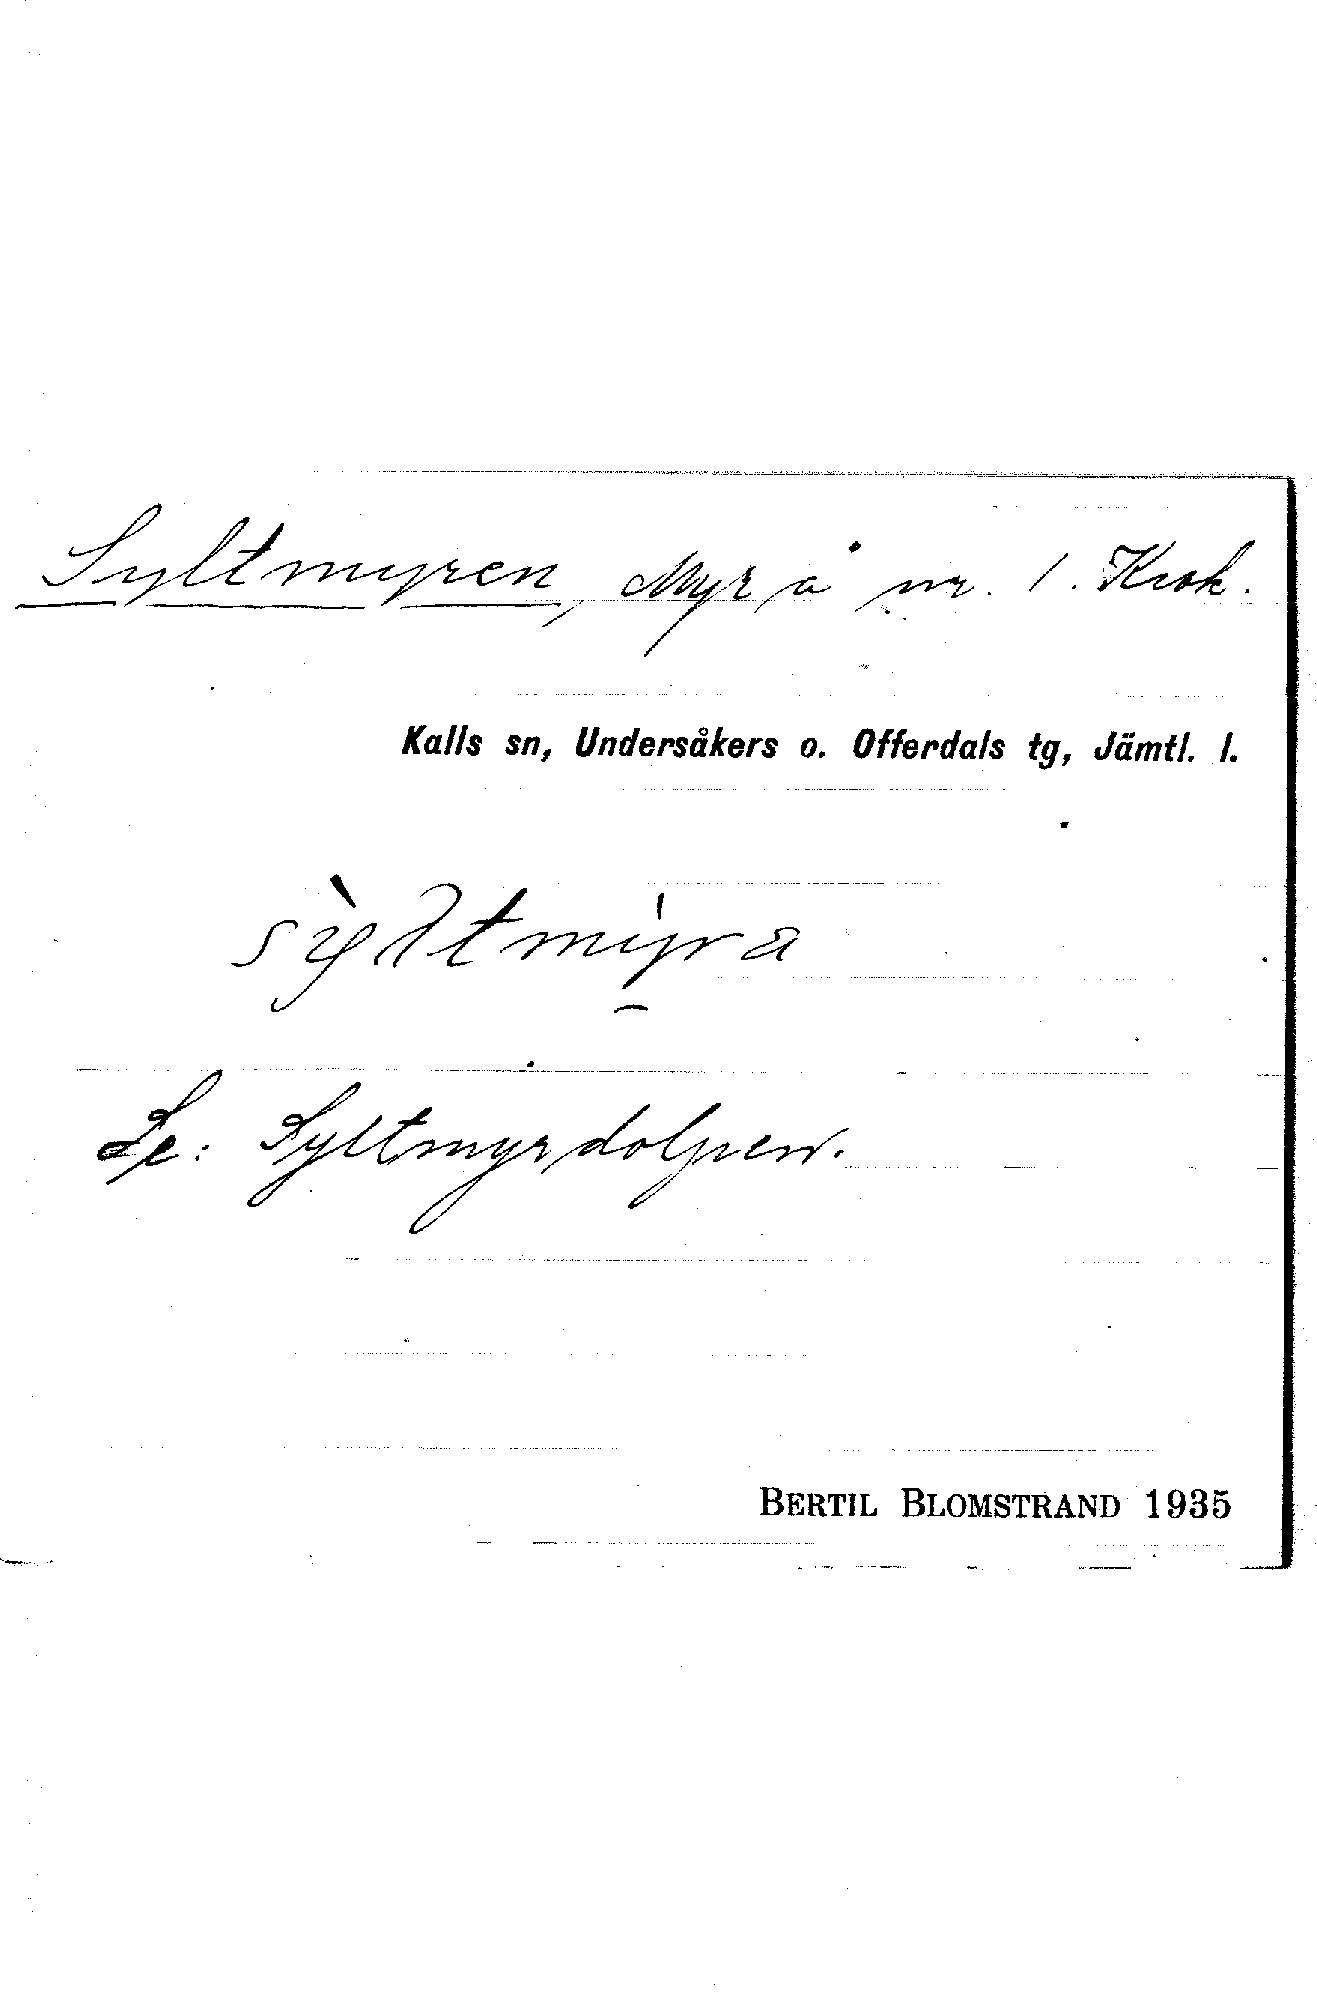 Syltmyren, Myr å nr. 1. Krok.
Kalls sn, Undersåkers o. Offerdals tg, Jämtl. l.
sỳltmyra
Se: Syltmyrdoljren.
BERTIL BLOMSTRAND 1935